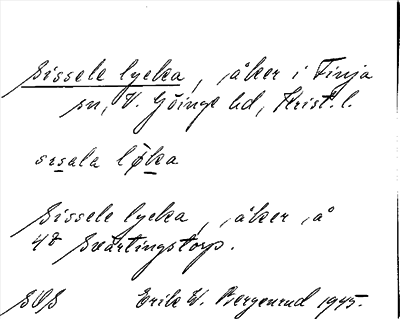 Sissele lycka, åker i Finja
sn, V. Göinge hd, Krist. l.
sısala lø̨ka
Sissele lycka, åker å
48 Svärtingstorp.
SOS Erik W. Bergenrud 1945.